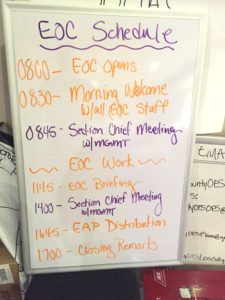 EOC Schedule
0800- EOC Opens
0830- Morning Welcome
w/all EOC Staff
0845- Section Chief Meeting
w/MGMT
~ EOC Work ~
1145- EOC Briefing
1400- Section Chief Meeting
w/MGMT
1645- EAP Distribution
1700- Closing Remarks
EMAC